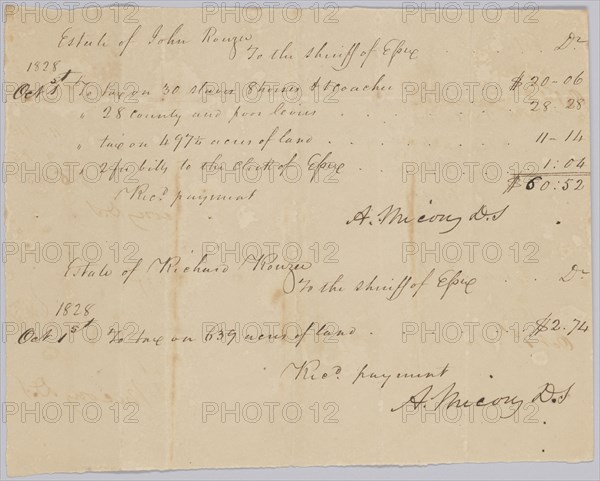 Estate of John Rouzee
To the sheriff of Essex . . Dr
1828
Oct 1st To tax on 30 slaves 8 horses & coachee $20-06
" 28 county and poor levies . . . 28 28
" tax on 497½ acres of land . . . . 11-14
" 2 fee bills to the clerk of Essex . . . 1:04
$60:52
Recd. payment
A. Micou, D.S
Estate of Richard Rouzee
To the sheriff of Essex . . Dr
1828
Oct 1st To tax on 639 acres of land . . . $2.74
Recd. payment
A. Micou, D.S
PHOTO 12